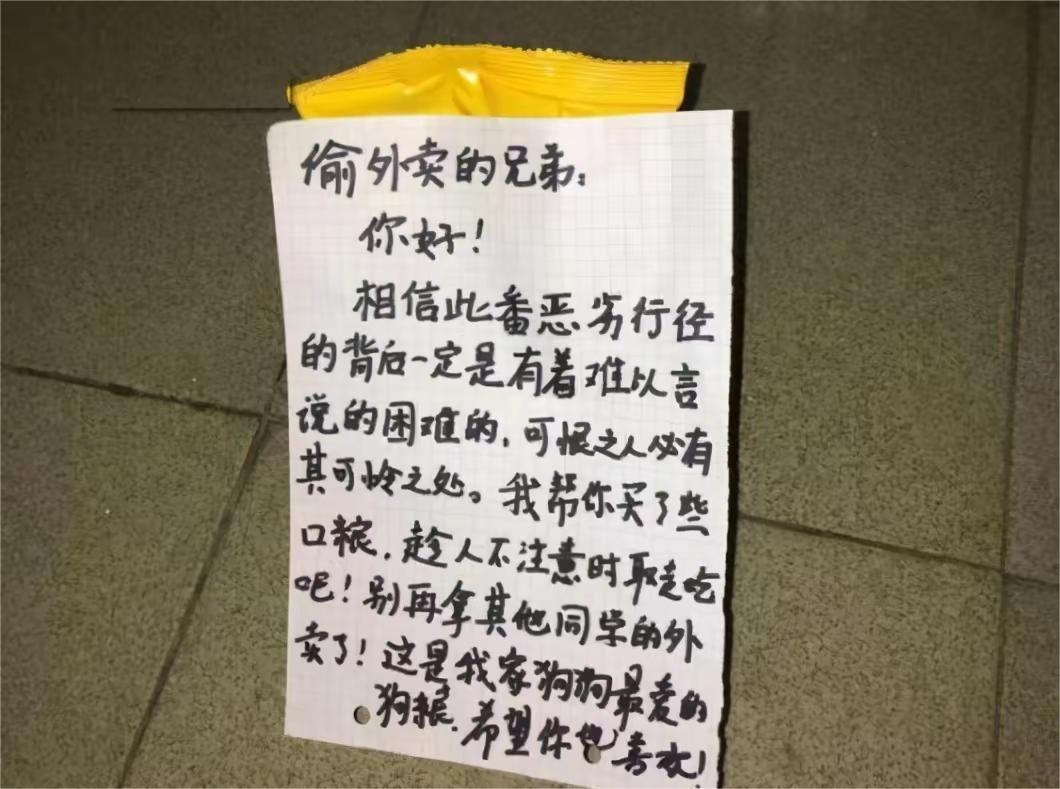 偷外卖的兄弟：
你好！
相信此番恶劣行径
的背后一定是有着难以言
说的困难的，可恨之人必有
其可怜之处。我帮你买了些
口粮，趁人不注意时取走吃
吧！别再拿其他同学的外
卖了！这是我家狗狗最爱的
狗粮，希望你也喜欢！